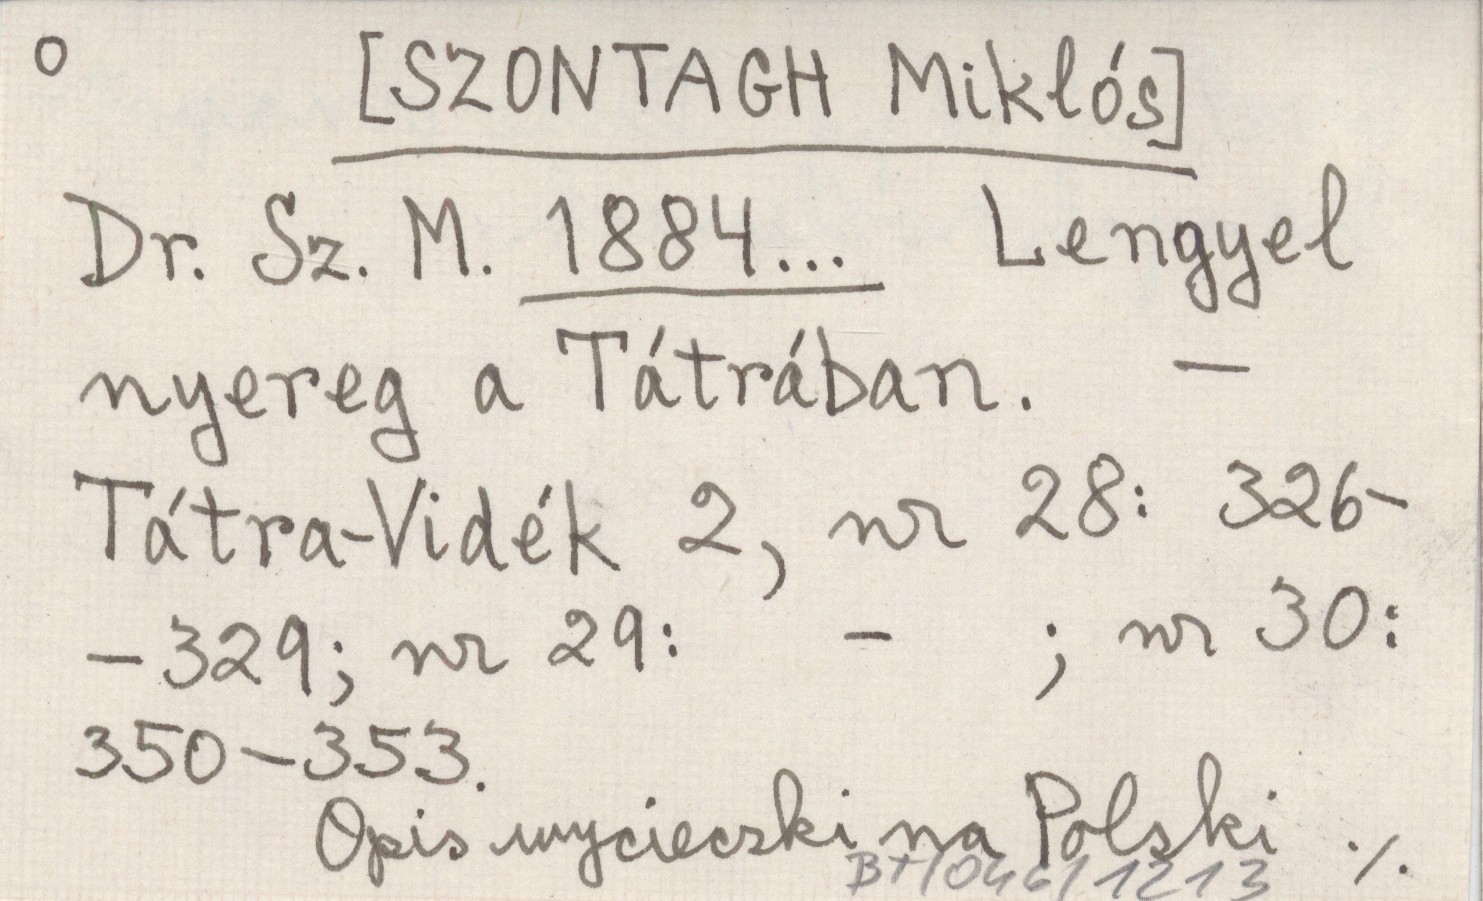 o [SZONTAGH Miklós]
Dr. Sz. M. 1884... Lengyel
nyereg a Tátrában. –
Tátra-Vidék 2, nr 28: 326-
-329; nr 29: - ; nr 30:
350-353.
Opis wycieczki na Polski ./.
BT/046/1213